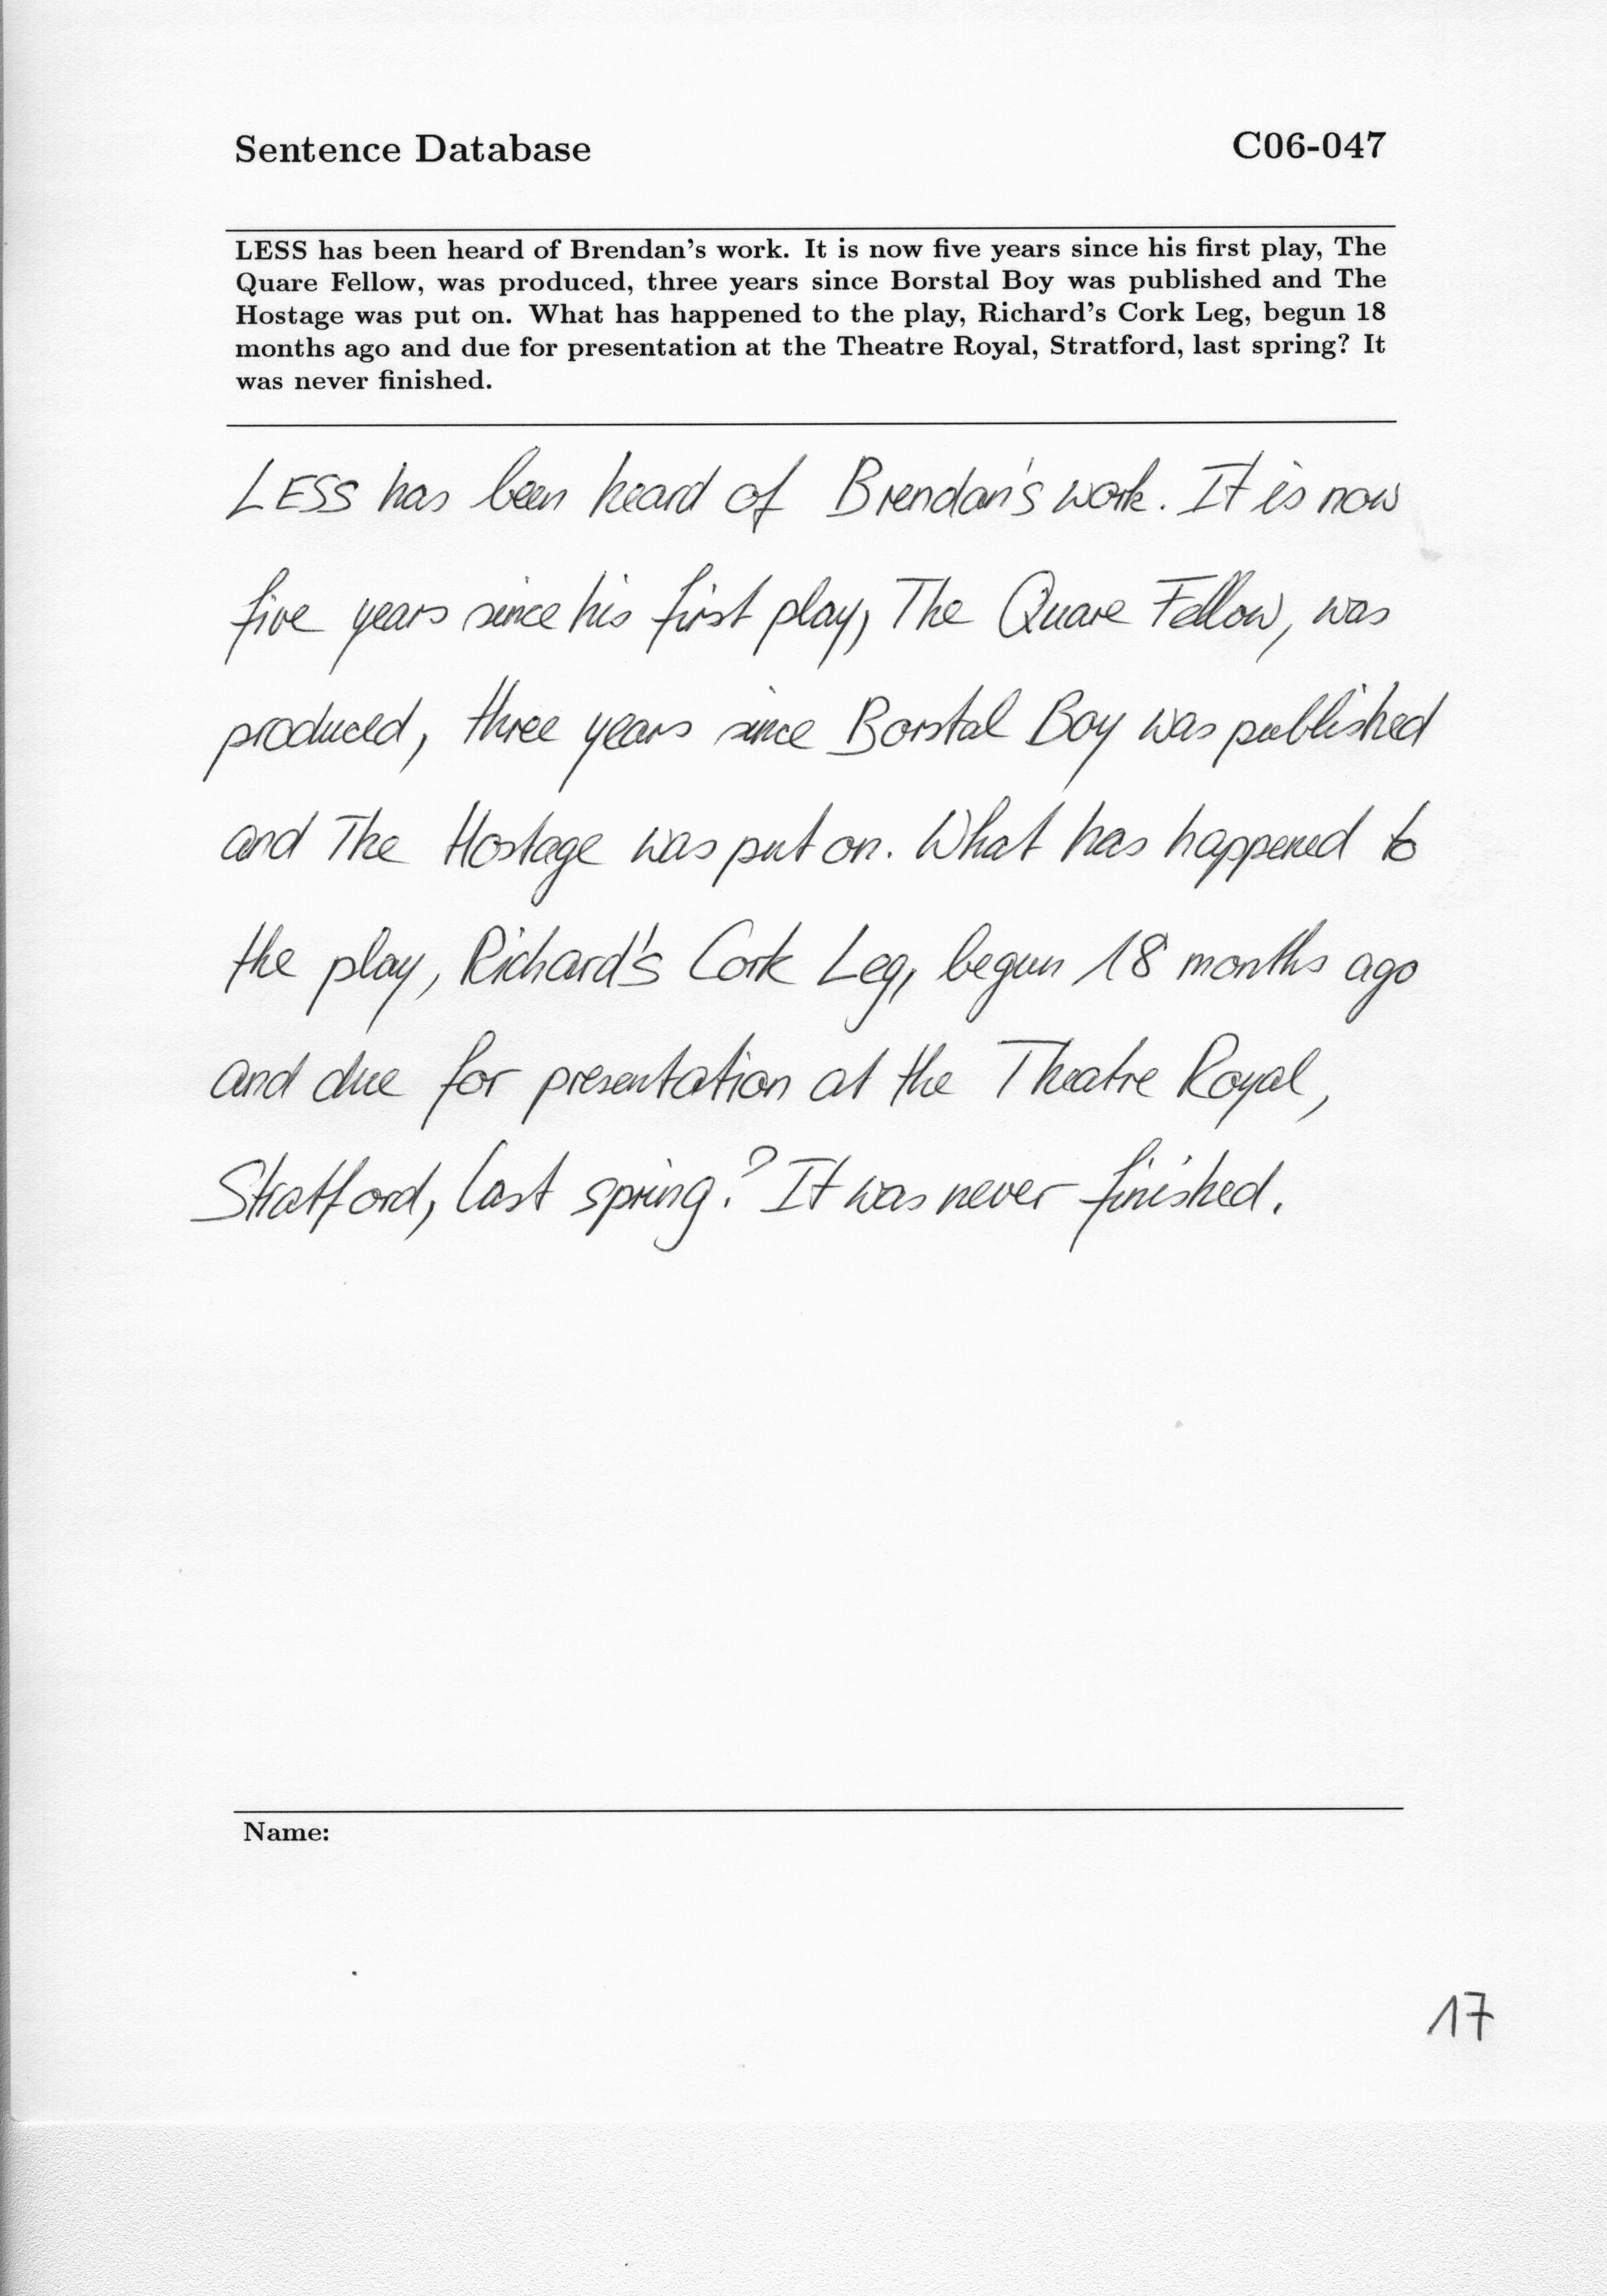 Sentence Database C06-047
LESS has been heard of Brendan's work. It is now five years since his first play, The
Quare Fellow, was produced, three years since Borstal Boy was published and The
Hostage was put on. What has happened to the play, Richard's Cork Leg, begun 18
months ago and due for presentation at the Theatre Royal, Stratford, last spring? It
was never finished.
LESS has been heard of Brendan's work. It is now
five years since his first play, The Quare Fellow, was
produced, three years since Borstal Boy was published
and The Hostage was put on. What has happened to
the play, Richard's Cork Leg, begun 18 months ago
and due for presentation at the Theatre Royal,
Stratford, last spring? It was never finished.
Name:
17